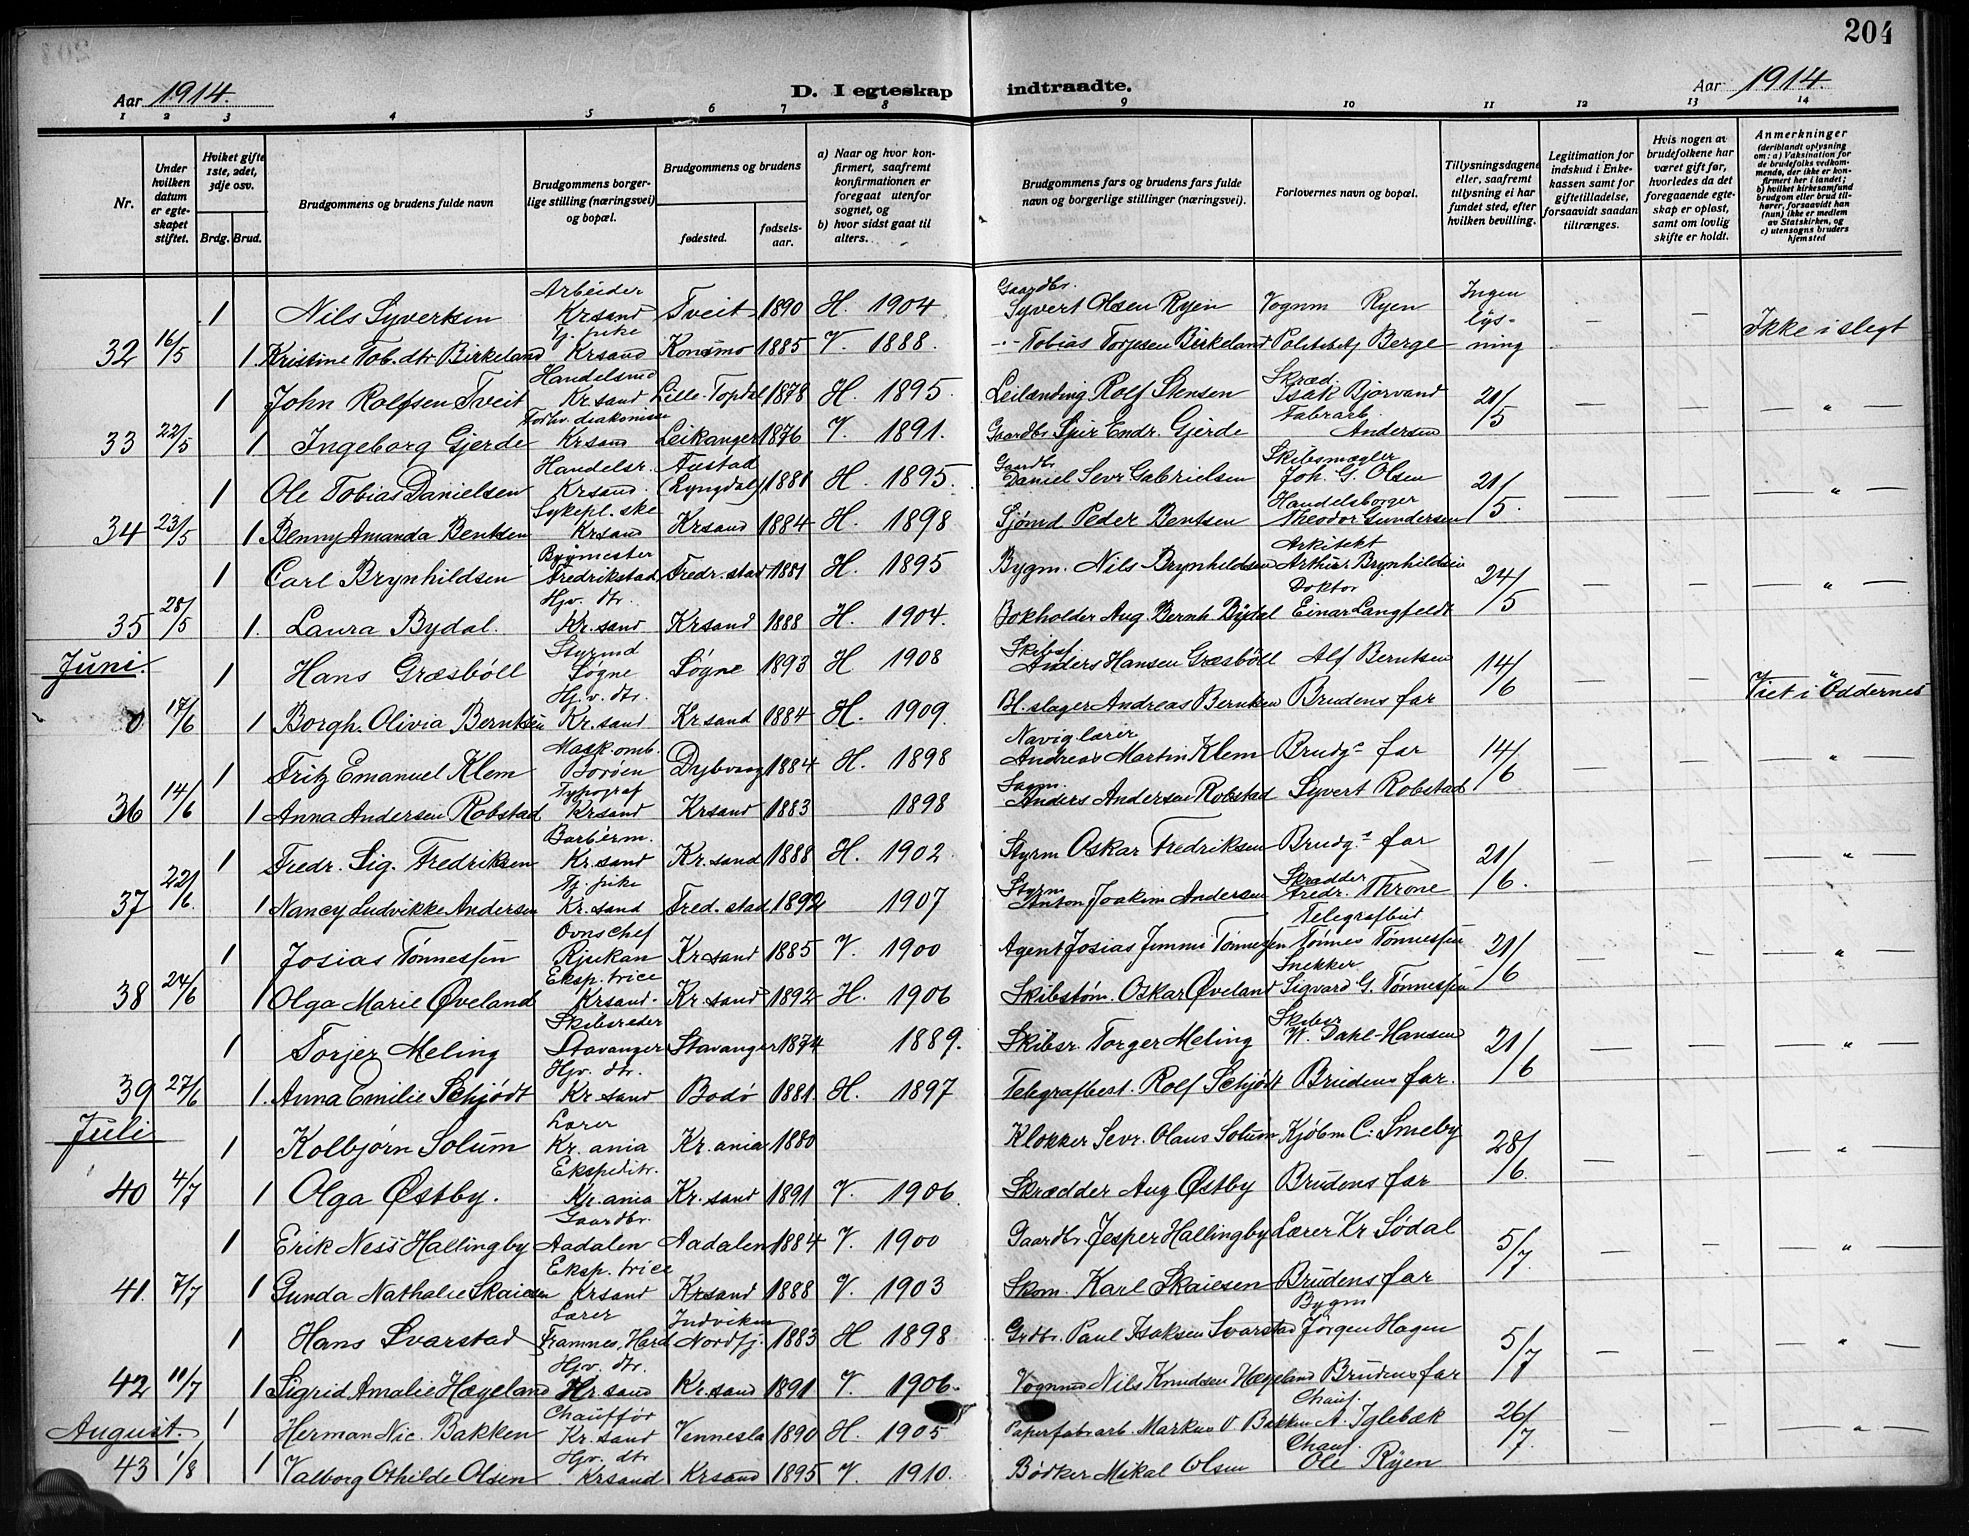 204
Aar 1914. D. I egteskap indtraadte. Aar 1914.
1 2 3 4 5 6 7 8 9 10 11 12 13 14
Nr.
Under hvilken datum er egteskapet stiftet.
Hviket gifte 1ste, 2det, 3dje osv.
Brdg. Brud.
Brudgommens og brudens fulde navn
Brudgommens borgerlige stilling (næringsvei) og bopæl.
Brudgommens og brudens
fødested. fødselsaar.
a) Naar og hvor konfirmert, saafremt konfirmationen er foregaaet utenfor sognet, og
b) hvor sidst gaat til alters.
Brudgommens fars og brudens fars fulde navn og borgerlige stillinger (næringsvei).
Forlovernes navn og bopæl.
Tillysningsdagene eller, saafremt tillysning ei har fundet sted, efter hvilken bevilling.
Legitimation for indskud i Enkekassen samt for giftetilladelse, forsaavidt saadan tiltrænges.
Hvis nogen av brudefolkene har været gift før, hvorledes da det foregaaende egteskap er opløst, samt om lovlig skifte er holdt.
Anmerkninger
(deriblandt oplysning om: a) Vaksination for de brudefolks vedkommende, der ikke er konfirmert her i landet;
b) hvilket kirkesamfund brudgom eller brud tilhører, forsaavidt han (hun) ikke er medlem av Statskirken, og
c) utensogns bruders hjemsted
1 Nils Syvertsen Arbeider Krsand Tveit 1890 H. 1904 Gaardbr. Syvert Olsen Ryen Vognm Ryen Ingen lys- — — Ikke i slegt
32 16/5 1. Kristine Tob. dtr Birkeland Tj. pike Krsand Konsmo 1885 V. 1888. -"- Tobias Torjesen Birkeland Politibetj Berge ning
1 John Rolfsen Tveit Handelsmd Kr.sand Lille-Topdal 1878 H. 1895 Leilænding Rolf Stensen Skræd. Isak Bjorvand 21/5 — — "
33 22/5 1 Ingeborg Gjerde Forhv. diakonisse Krsand Leikanger 1876 V. 1891. Gaardbr Spir Endr. Gjerde Fabrarb. Andersen
1 Ole Tobias Danielsen Handelsr. Krsand. (Lyngdal) 1881 H. 1895. Gaardbr Daniel Sevr Gabrielsen Skibsmægler Joh. G. Olsen 21/5. — — "
34 23/5 1. Benny Amanda Bentsen Sykepl. ske Krsand Krsand 1884 H. 1898 Sjømd Peder Bentsen Handelsborger Theodor Gundersen
1 Carl Brynhildsen Bygmester Fredrikstad Fredr.stad 1881 H. 1895 Bygm. Nils Brynhildsen Arkitekt Arthur Brynhildsen 24/5 — — "
35 28/5 1. Laura Bydal. Hjv. dtr. Kr.sand Krsand 1888 H. 1904. Bokholder Aug. Bernh Bydal Doktor Einar Langfeldt
Juni.
1 Hans Græsbøll Styrmd Søgne Søgne 1893 H 1908 Skibsf. Anders Hansen Græsbøll Alf Berntsen 14/6 — — "
0 17/6 1 Borgh. Olivia Berntsen Hj.v. dtr. Kr.sand Kr sand 1884 H. 1909. Bl.slager Andreas Berntsen Brudens far Viet i Oddernes
1 Fritz Emanuel Klem Mask.omb. Borøen Dybvaag 1884 H. 1898 Naviglærer Andreas Martin Klem Brudgs far 14/6 — — "
36 14/6 1 Anna Andersen Robstad Typograf Krsand Krsand 1883 1898 Anders Andersen Robstad Syvert Robstad
1 Fredr. Sig. Fredriksen Barberm. Kr.sand Kr.sand 1888 H. 1902 Styrm Oskar Fredriksen Brudgs far 21/6. — — "
37 22/6. 1 Nancy Ludvikke Andersen Tj. pike Kr.sand Fred.stad 1892 1907 Styrm Anton Joakim Andersen Skrædder Fredr. Throne
1 Josias Tønnessen Ovnschef Rjukan Kr.sand 1885 V. 1900 Agent Josias Jemmi Tønnessen Telegrafbud Tønnes Tønnessen 21/6 — — "
38 24/6 1 Olga Marie Øveland Eksp.trice Krsand. Kr.sand 1892 H. 1906 Skibstøm. Oskar Øveland Snekker Sigvard G. Tønnessen
1 Torjer Meling Skibsreder Stavanger Stavanger 1874 1889. Skibsr. Torger Meling Skibsr W. Dahl-Hansen 21/6 — — "
39 27/6 1. Anna Emilie Schjødt Hjv. dtr. Kr.sand Bodø 1881. H. 1897 Telegrafbest. Rolf Schjødt Brudens far.
Juli
1 Kolbjørn Solum Lærer Kr.ania Kr.ania 1880 Klokker Sevr. Olaus Solum Kjøbm C. Smeby 28/6. — — "
40 4/7 1 Olga Østby. Ekspeditr. Kr.ania Kr.sand 1891 V. 1906 Skrædder Aug. Østby Brudens far
1 Erik Ness Hallingby Gaardbr. Aadalen Aadalen 1884 V. 1900 Gaardbr. Jesper Hallingby Lærer Kr Sødal 5/7. — — "
41. 7/7 1 Gunda Nathalie Skaiesen Eksp.trice Krsand Krsand 1888 V. 1903 Skom. Karl Skaiesen Brudens far
1 Hans Svarstad Lærer Framnes, Hard Indviken Nordfj. 1883 H 1898 Grdbr. Paul Isaksen Svarstad Bygm Jörgen Hagen 5/7 — — "
42 11/7 1 Sigrid Amalie Hægeland Hjv. dtr. Kr.sand Kr.sand 1891 V. 1906. Vognmd Nils Knudsen Hægeland Brudens far
August.
1 Herman Nic. Bakken Chauffør Kr.sand Vennesla 1890 H. 1905 Papirfabrarb. Markus O Bakken Chauf. A. Iglebæk 26/7. — — "
43 1/8 1 Valborg Othilde Olsen Hjv. dtr Krsand Krsand 1895 V. 1910. Bødker Mikal Olsen Chauf. Ole Ryen